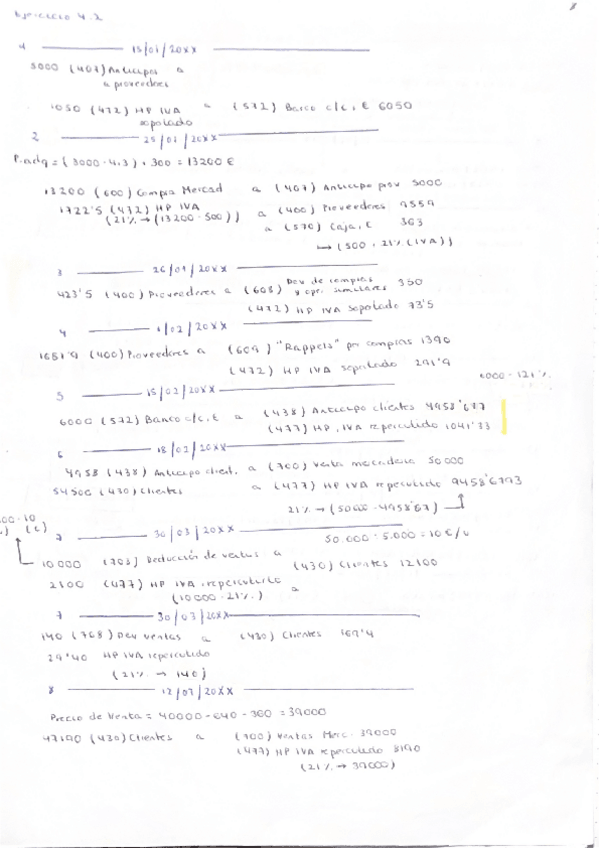 Ejercicio 4.2
1 15/01/20XX
5000 (407) Anticipos a
a proveedores
1050 (472) HP IVA a (572) Banco c/c, € 6050
sopotado
2 25/01/20XX
P.adq = (3000 · 4,3) + 300 = 13200 €
13200 (600) Compra Mercad a (407) Anticipo prov 5000
1722'5 (472) HP IVA a (400) Proveedores 9559
(21% → (13200 - 500)) a (570) Caja, € 363
↳ (500 + 21% (IVA))
3 26/01/20XX
423'5 (400) Proveedores a (608) Dev de compras 350
y ope. similares
(472) HP IVA sopotado 73'5
4 1/02/20XX
1651'9 (400) Proveedores a (609) "Rappels" por compras 1390
(472) HP IVA sopotado 291'9
5 15/02/20XX
6000 - 121%
6000 (572) Banco c/c, € a (438) Anticipo clientes 4958'677
(477) HP, IVA repercutido 1041'33
6 18/03/20XX
4958 (438) Anticipo client. a (700) Venta mercaderia 50000
54500 (430) Clientes a (477) HP IVA repercutido 9458'6793
21% → (50000 - 4958'67)
7 30/03/20XX
50.000 : 5.000 = 10 €/u
10000 Deducción de ventas a
(430) Clientes 12100
2100 (477) HP IVA repercutido a
(10000 · 21%)
7 30/03/20XX
140 (708) Dev ventas a (430) Clientes 169'4
29'40 HP IVA repercutido
(21% → 140)
8 12/07/20XX
Precio de Venta = 40000 - 640 - 360 = 39000
47190 (430) Clientes a (700) Ventas Merc. 39000
(477) HP IVA repercutido 8190
(21% → 39000)